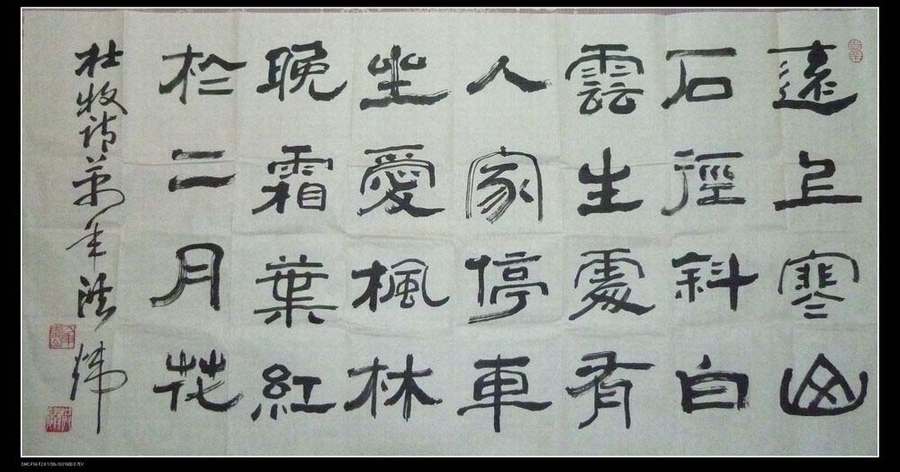 遠上寒山
石徑斜白
雲生處有
人家停車
坐愛楓林
晚霜葉紅
於二月花
杜牧詩